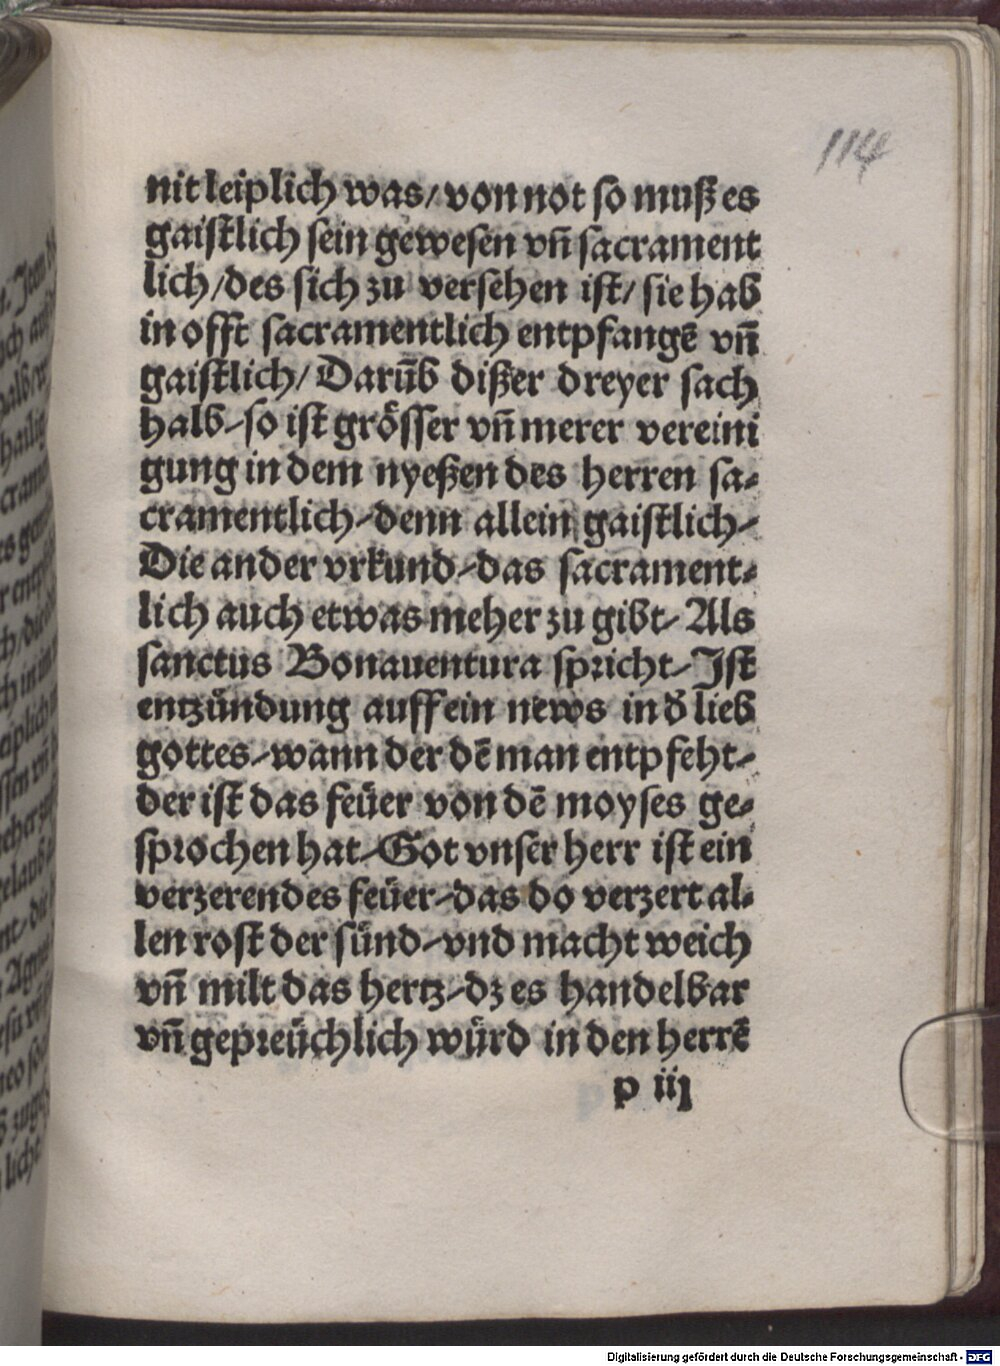 114
nit leiplich was/ von not so muß es
gaistlich sein gewesen vñ sacrament
lich/des sich zu versehen ist/ sie hab
in offt sacramentlich entpfangē vñ
gaistlich/ Darūb dißer dreyer sach
halb/ so ist grösser vñ merer vereini
gung in dem nyeßen des herren sa⸗
cramentlich/ denn allein gaistlich/
Die ander vrkund/ das sacrament⸗
lich auch etwas meher zu gibt/ Als
sanctus Bonauentura spricht/ Ist
entzündung auff ein news in d̕ lieb
gottes/ wann der dē man entpfeht/
der ist das feüer von dē moyses ge⸗
sprochen hat/ Got vnser herr ist ein
verzerendes feüer/ das do verzert al⸗
len rost der sünd/ vnd macht weich
vñ milt das hertz/ dz es handelbar
vñ gepreüchlich würd in den herrē
p iij
Digitalisierung gefördert durch die Deutsche Forschungsgemeinschaft - DFG